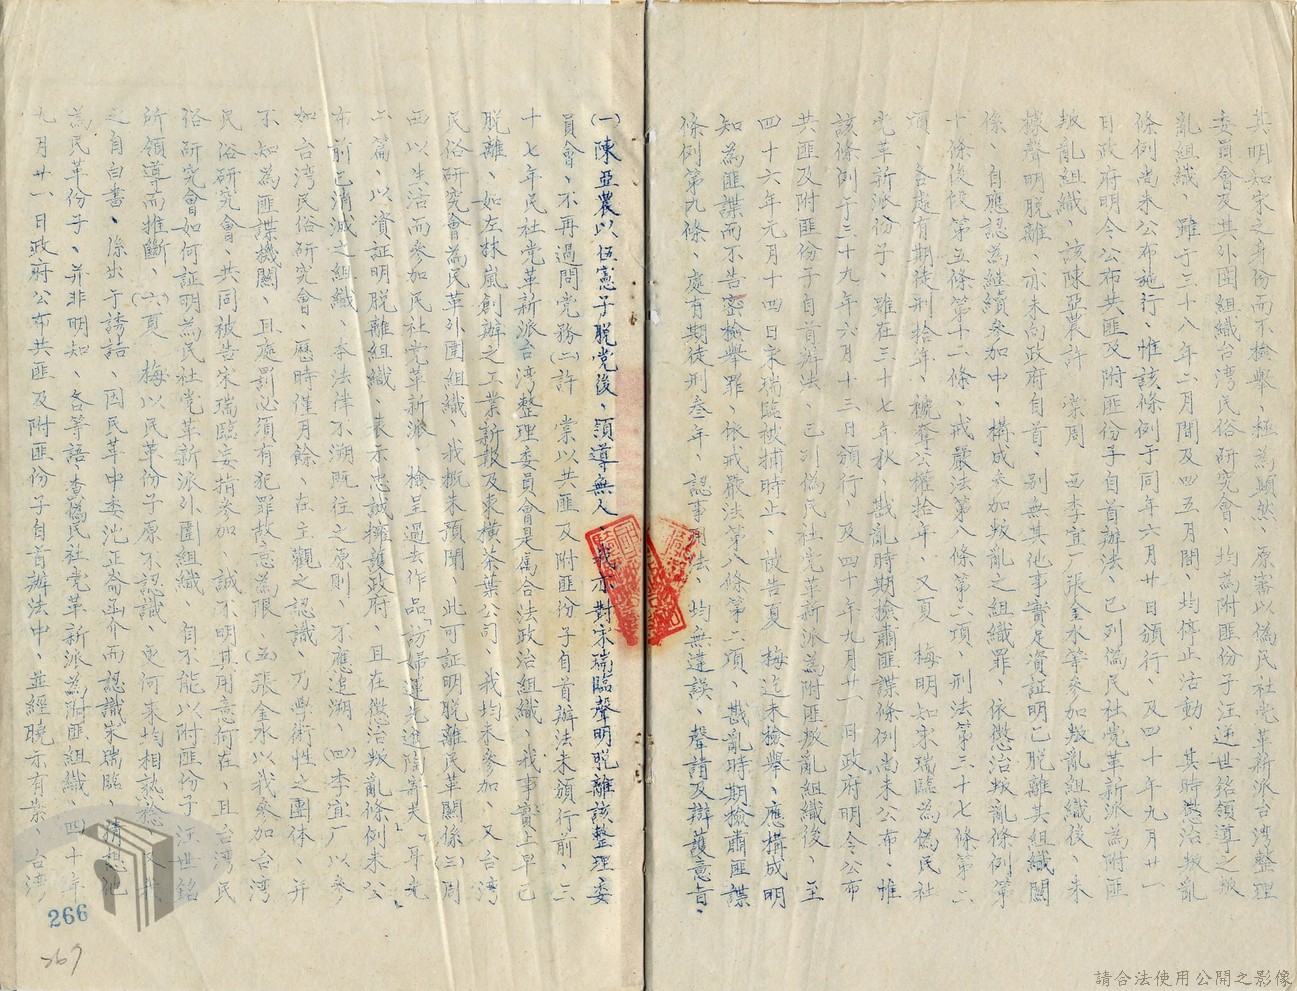 其明知宋之身份而不檢舉、極為顯然、原審以偽民社党革新派台湾整理
委員會及其外围組織台湾民俗研究會、均為附匪份子汪世銘領導之叛
亂組織、雖于三十八年二月間及四五月間、均停止活動、其時懲治叛亂
條例尚未公布施行、惟該條例于同年六月廿日頒行、及四十年九月廿一
日政府明令公布共匪及附匪份子自首辦法、已列偽民社党革新派為附匪
叛亂組織、該陳亞農許 棠周 西李宜广張金水等參加叛亂組織後、未
據聲明脫離、亦未向政府自首、別無其他事實足資証明已脫離其組織關
係、自應認為繼續參加中、構成參加叛亂之組織罪、依懲治叛亂條例第
十條後段第五條第十二條、戒嚴法第八條第二項、刑法第三十七條第二
項、各處有期徒刑拾年、褫奪公權拾年、又夏 梅明知宋瑞臨為偽民社
党革新派份子、雖在三十七年秋、戡亂時期檢肅匪諜條例尚未公布、惟
該條例于三十九年六月十三日頒行、及四十年九月廿一日政府明令公布
共匪及附匪份子自首辦法、已列偽民社党革新派為附匪叛亂組織後、至
四十六年元月十四日宋瑞臨被捕時止、被告夏 梅迄未檢舉、應構成明
知為匪諜而不告密檢舉罪、依戒嚴法第八條第二項、戡亂時期檢肅匪諜
條例第九條、處有期徒刑叁年、認事用法、均無違誤、聲請及辯護意旨、
(一)陳亞農以伍憲子脫党後、領導無人、我亦對宋瑞臨聲明脫離該整理委
員會、不再過問党務(二)許 棠以共匪及附匪份子自首辦法未頒行前、三
十七年民社党革新派台湾整理委員會是屬合法政治組織、我事實上早已
脫離、如左林嵐創辦之工業新報及東橫茶葉公司、我均未參加、又台湾
民俗研究會為民革外围組織、我概未預聞、此可証明脫離民革關係(三)周
西以生活而參加民社党革新派、檢呈過去作品「訪婦運先進陶寄天」「耳光」
二篇、以資証明脫離組織、表示忠誠擁護政府 且在懲治叛亂條例未公
布前已消滅之組織、本法律不溯既往之原則 不應追溯、(四)李宜广以參
如台湾民俗研究會、歷時僅月餘、在主觀之認識、乃學術性之團体、并
不知為匪諜機關、且處罰必須有犯罪故意為限、(五)張金水以我參加台湾
民俗研究會、共同被告宋瑞臨妄指參加、誠不明其用意何在 且台湾民
俗研究會如何証明為民社党革新派外围組織、自不能以附匪份子汪世銘
所領導而推斷、(六)夏 梅以民革份子原不認識、更何來均相熟稔、又我
之自白書、係出于誘詰、因民革中委沈正崙函介而認識宋瑞臨、
為民革份子、并非明知、各等語、查偽民社党革新派為附匪組織、四十年
九月廿一日政府公布共匪及附匪份子自首辦法中、並經曉示有案、台湾
266
267
請合法使用公開之影像